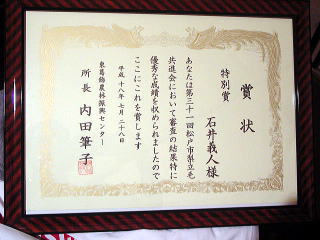 賞状
特別賞
石井義人様
あなたは第三十一回松戸市県立毛
共進会において審査の結果特に
優秀な成績を収められましたので
ここにこれを賞します
平成十八年七月二十八日
東葛飾農林振興センター
所長 内田筆子